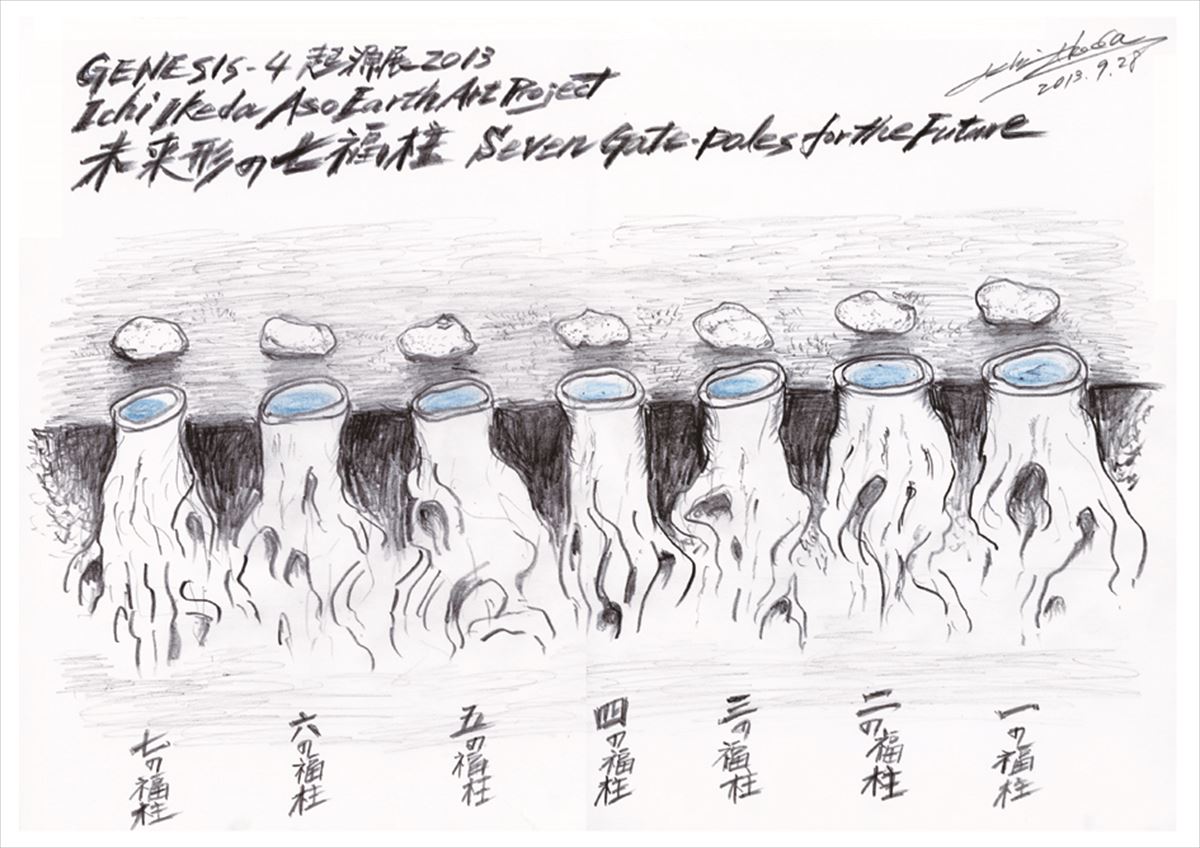 GENESIS-4 起源展2013
Ichi Ikeda Aso Earth Art Project
未来形の七福柱 Seven Gate-poles for the Future
Ichi Ikeda
2013.9.28
七の福柱
六の福柱
五の福柱
四の福柱
三の福柱
二の福柱
一の福柱